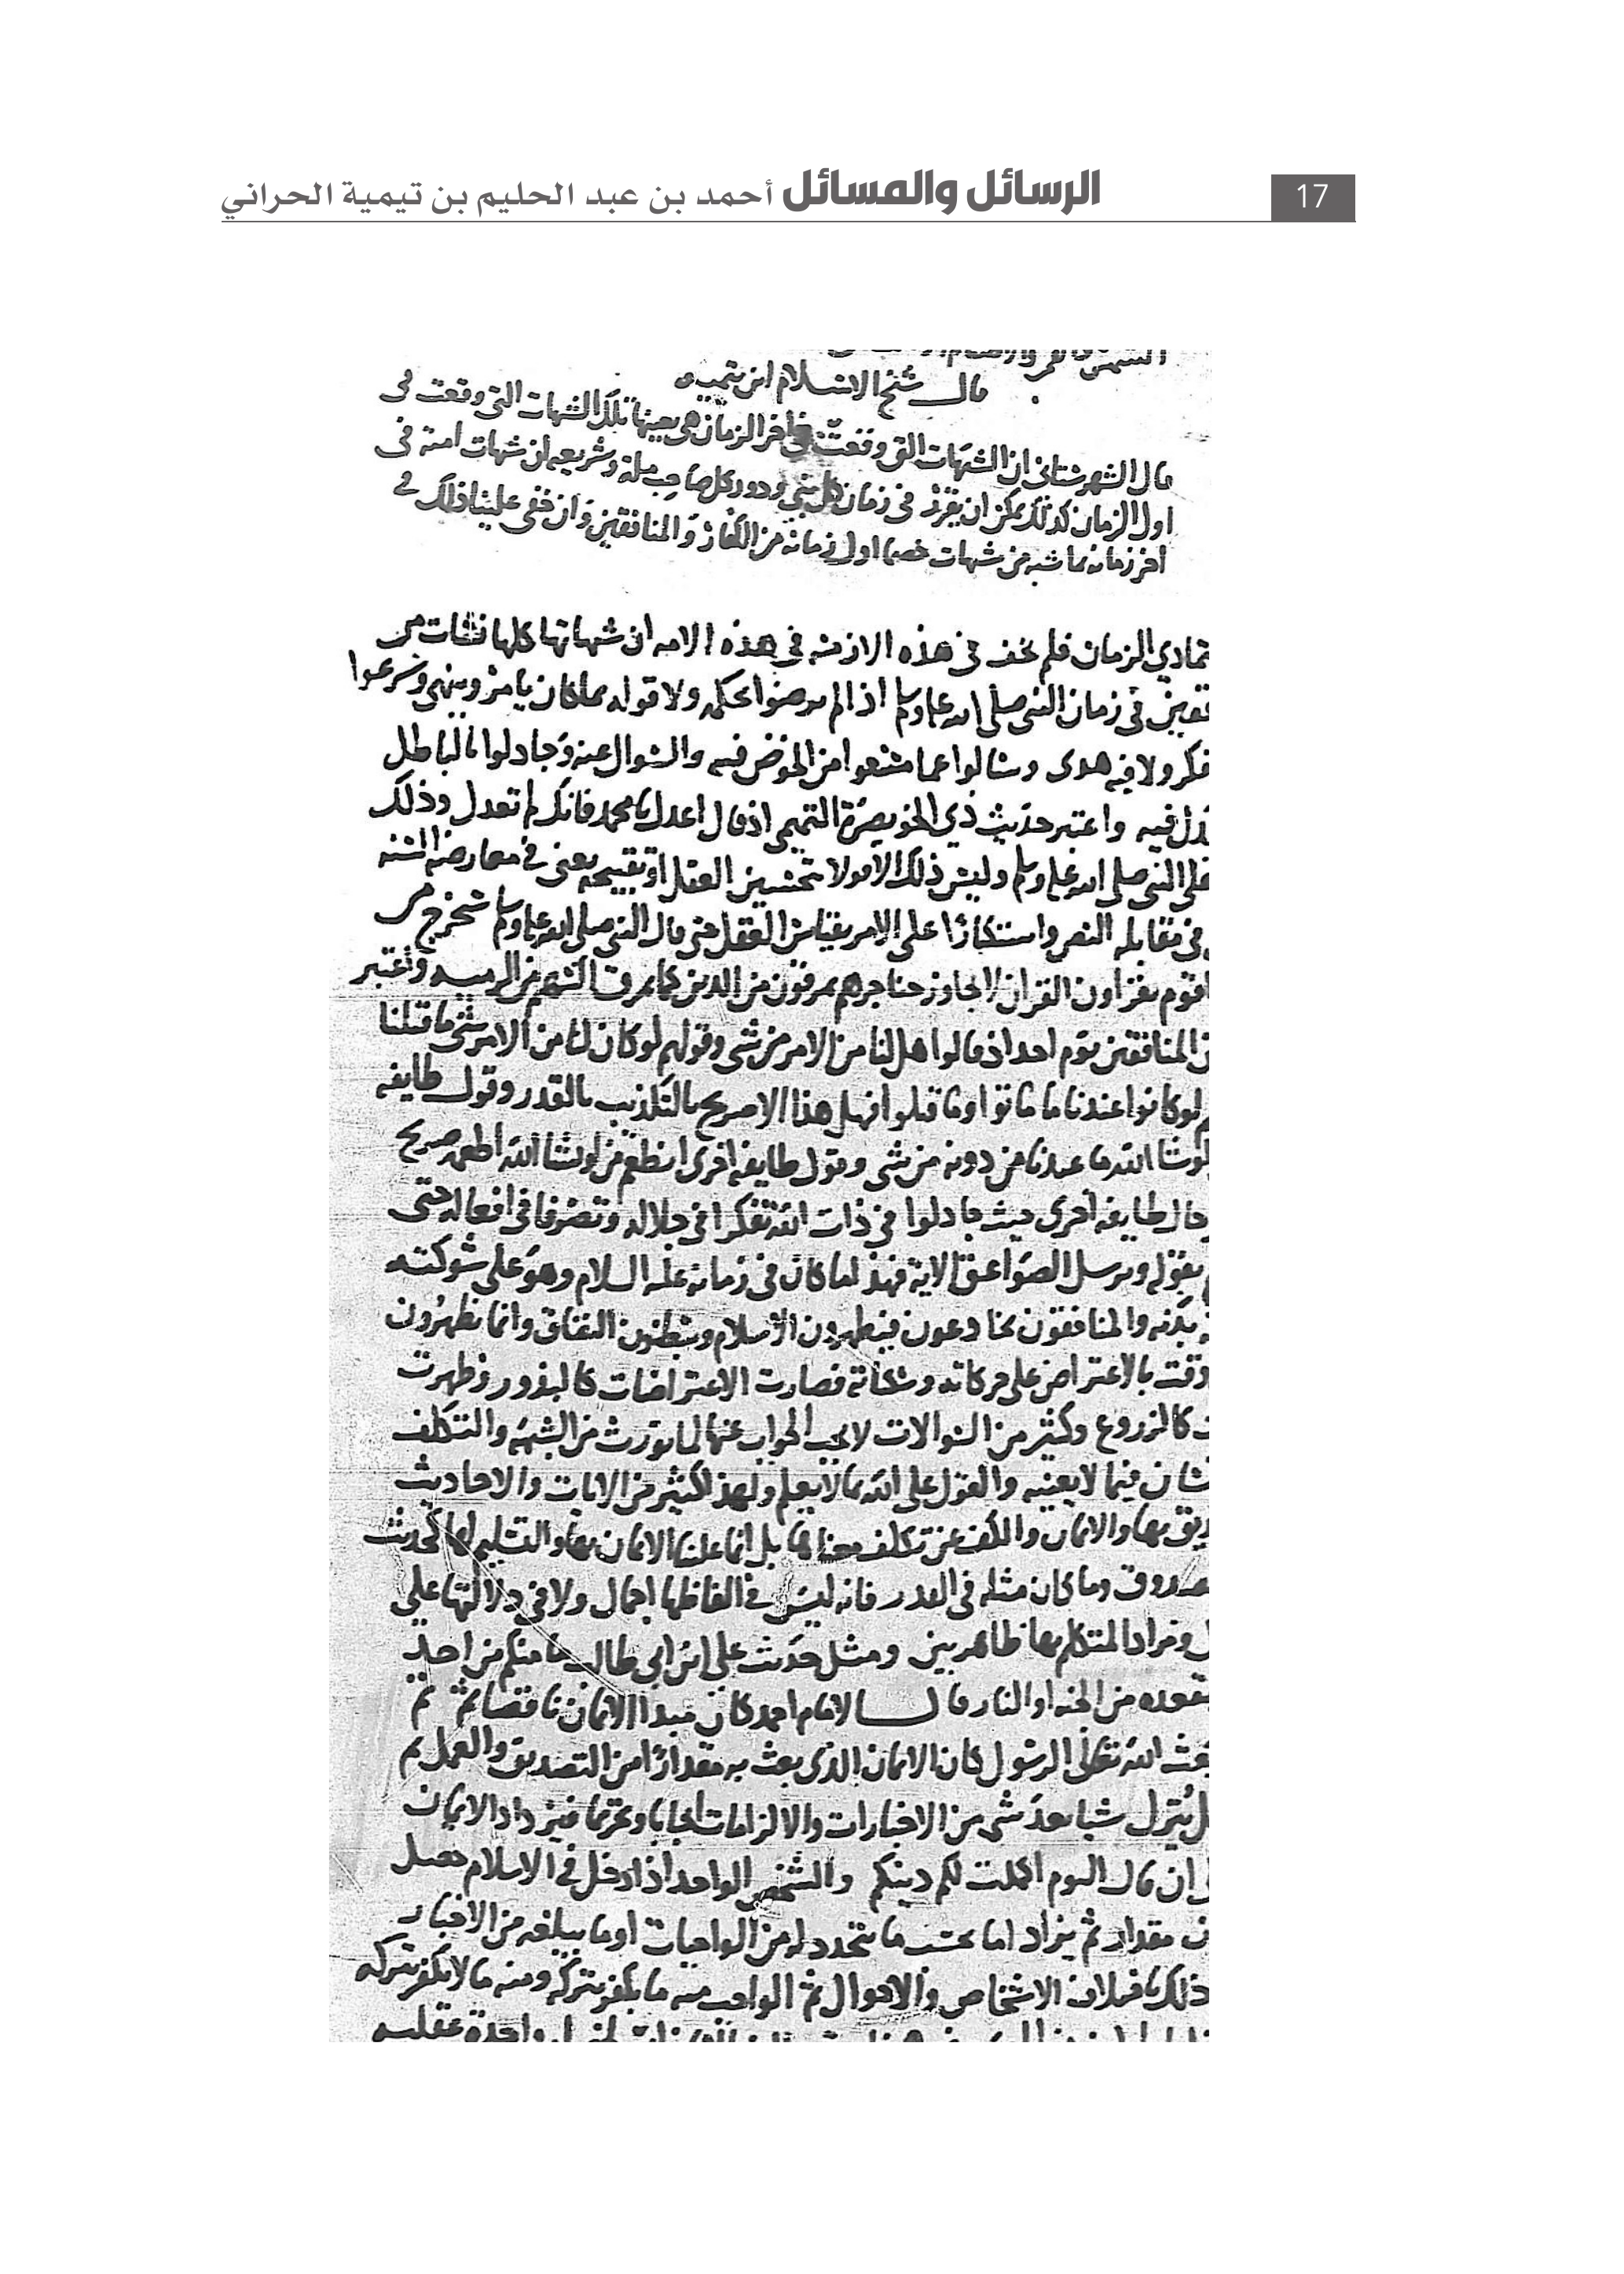 17
الرسائل والمسائل أحمد بن عبد الحليم بن تيمية الحراني
قال شيخ الاسلام ابن تيميه
قال الشهرستاني ان الشبهات التي وقعت في اخر الزمان هي بعينها تلك الشبهات التي وقعت في
اول الزمان كذلك يمكن ان يقرر في زمان كل نبي ودور كل صاحب مله وشريعه ان شبهات امته في
اخر زمانه ناشيه من شبهات خصما اول زمانه من الكفار والمنافقين وان خفي علينا ذلك في
تمادي الزمان فلم يخف في هذه الازمنه في هذه الامه ان شبهاتها كلها نشات من
في زمان النبي صلى الله عليه وسلم اذ لم يرضوا بحكمه ولا قوله بما كان يامر وينهي وشرعوا
فكر ولا فيه هدى وسالوا عما منعوا من الخوض فيه والسوال عنه وجادلوا بالباطل
فيه واعتبر حديث ذي الخويصرة التميمي اذ قال اعدل يا محمد فانك لم تعدل وذلك
على النبي صلى الله عليه وسلم وليس ذلك الا قولا بتحسين العقل او تقبيحه يعني في معارضه السنه
في مقابله النص واستكبارا على الامر بقياس العقل حتى قال النبي صلى الله عليه وسلم سيخرج من
قوم يقراون القران لا يجاوز حناجرهم يمرقون من الدين كما يمرق السهم من الرميه واعتبر
المنافقين يوم احد اذ قالوا هل لنا من الامر من شي وقولهم لو كان لنا من الامر شي ما قتلنا
لو كانوا عندنا ما ماتوا وما قتلوا فهل هذا الا صريح بالتكذيب بالقدر وقول طايفه
لو شا الله ما عبدنا من دونه من شي وقول طايفه اخرى انطعم من لو يشا الله اطعمه صريح
حال طايفه اخرى حيث جادلوا في ذات الله تفكرا في جلاله وتصرفا في افعاله حتى
بقوله ويرسل الصواعق الاية فهذا ما كان في زمانه عليه السلام وهو على شوكته
بدنه والمنافقون يخادعون فيظهرون الاسلام ويبطنون النفاق وانما يظهرون
وقت بالاعتراض على حركاته وسكناته فصارت الاعتراضات كالبذور وظهرت
كالزروع وكثير من السوالات لا يجب الجواب عنها لما يورث من الشبهه والتكلف
فيما لا يعنيه والقول على الله ما لا يعلم ولهذا كثير من الايات والاحاديث
بها والايمان والكف عن تكلف معناها بل انما علينا الايمان بها والتسليم لها كحديث
وما كان مثله في القدر فانه ليس في الفاظها اجمال ولا في دلالتها على
ومراد المتكلم بها ظاهر بين ومثل حديث علي ابن ابي طالب ما منكم من احد
مقعده من الجنه او النار قال الامام احمد كان مبدا الايمان ناقصا ثم
بعث الله تعالى الرسول كان الايمان الذي بعث به مقدارا من التصديق والعمل ثم
ينزل شيا بعد شي من الاخبارات والالزامات ايجابا وتحريما فيزداد الايمان
ان قال اليوم اكملت لكم دينكم والشخص الواحد اذا دخل في الاسلام حصل
مقدار ثم يزاد اما بحسب ما يتجدد له من الواجبات او ما يبلغه من الاخبار
ذلك باختلاف الاشخاص والاحوال ثم الواجب منه ما يكفر بتركه ومنه ما لا يكفر بتركه